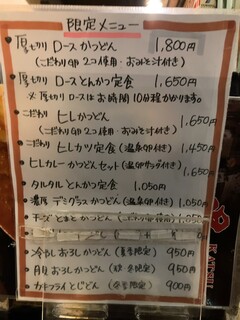 限定メニュー
厚切り ロースかつどん 1,800円
(こだわり卵2コ使用・おみそ汁付き)
厚切り ロースとんかつ定食 1,650円
※厚切りロースはお時間10分程かかります。
こだわり ヒレかつどん 1,650円
(こだわり卵2コ使用・おみそ汁付き)
こだわり ヒレカツ定食 (温泉卵付き) 1,450円
ヒレカレーかつどんセット (温卵サラダ付き) 1,650円
タルタルとんかつ定食 1,050円
濃厚デミグラスかつどん (温泉卵付き) 1,050円
チーズとまとかつどん 1,050
冷やしおろしかつどん (夏季限定) 950円
月見おろしかつどん (秋・冬限定) 950円
カキフライとじどん (冬季限定) 900円